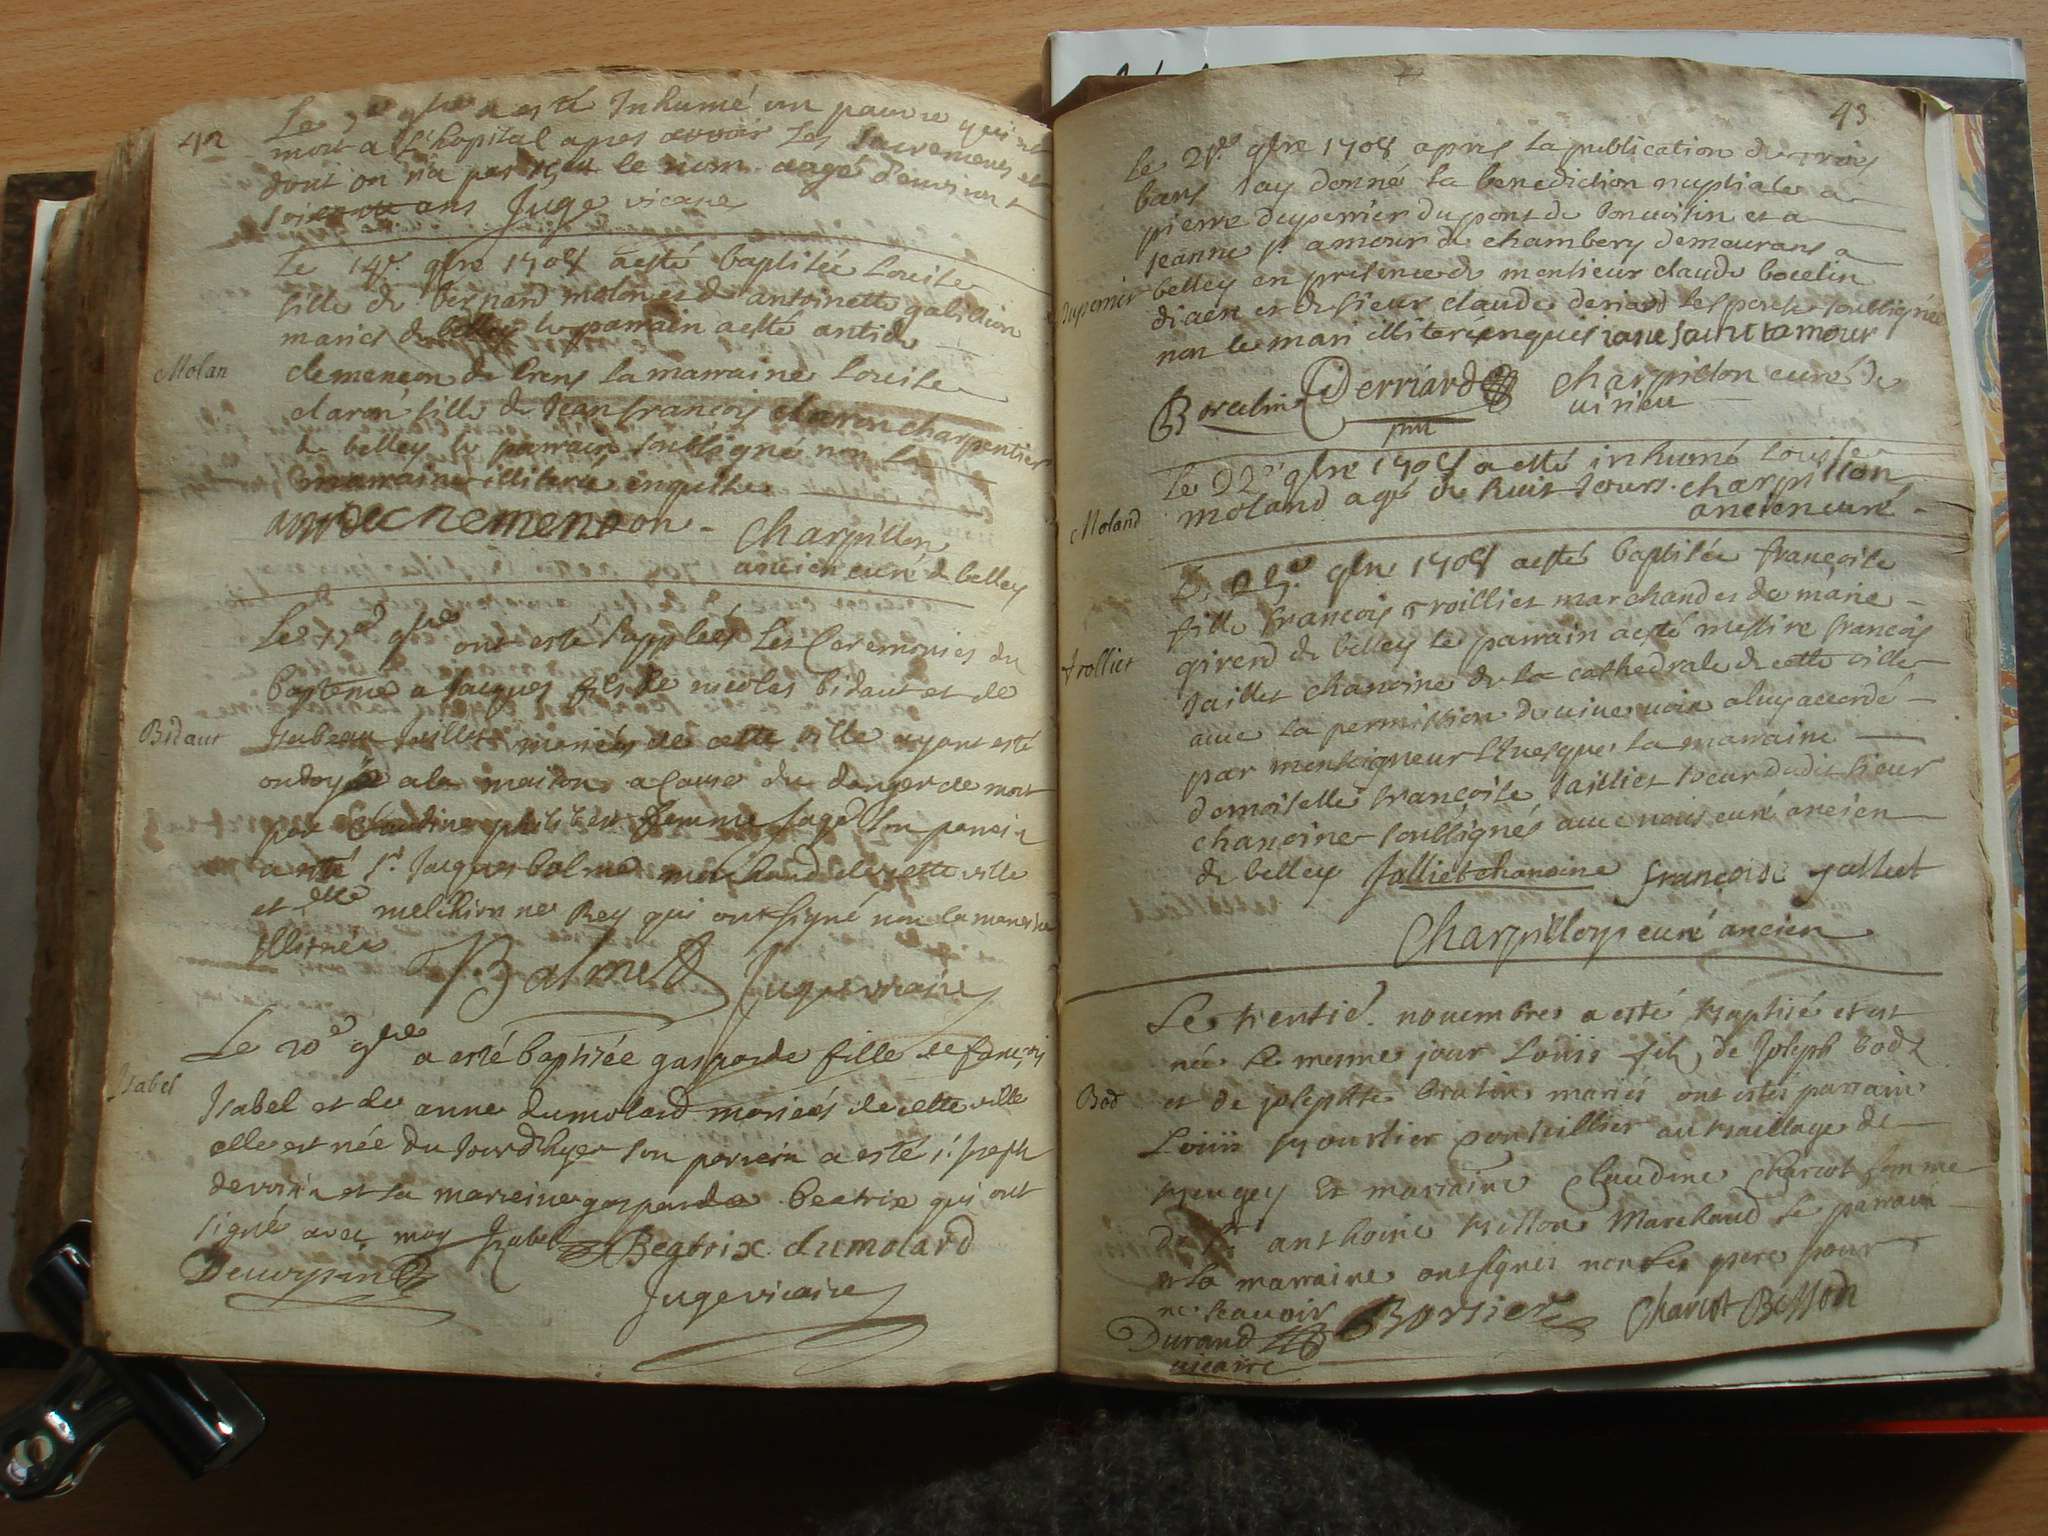 42
Le 9e 9bre a esté Inhumé un pauvre qui est
mort a L'hopital apres avoir Les sacremens et
dont on n'a pas sçu le nom. aagé d'environt
soixante ans Juge vicaire
Le 14e. 9bre 1708 aesté baptisée Louise
fille de bernard molon et de antoinette
maries de belley le parrain aesté antide
Molan
clemencon de la marraine Louise
claron fille de Jean françois claron charpentier
de belley le parrain soubsigné non la
marraine illiteree enquise
clemencon - Charpillon
ancien curé de belley
Le 9bre ont esté supplées Les Ceremonies du
bapteme a Jacques fils de nicolas bidaut et de
Bidaut
Isabeau mariés de cette ville ayant esté
ondoyé a la maison a Cause du danger de mort
par Claudine philibert femme sage son parrein
a esté sr. Jacques balme marchand de cette ville
et melchionne Rey qui ont signé non la marreine
illiteree
Balme Juge vicaire
Le 20e 9bre a esté baptisée gasparde fille de françois
Isabel
Isabel et de anne dumolard mariés de cette ville
elle est née du Jourdhyer son parrein a esté sr. Joseph
devoisin et sa marreine gasparde beatrix qui ont
signé avec moy Izabel Beatrix dumolard
Juge vicaire
43
le 21e 9bre 1708 apres la publication de trois
bans Jay donné la benediction nuptiale a
pierre duperrier du pont de bonvoisin et a
jeanne st amour de chambery demeurans a
duperrier
belley en presence de monsieur claude bocelin
diacre et de sieur claude deriard soubsignés
non le mari illitere enquis iane saint tamour
Bocelin Derriard Charpillon curé de
virieu
Le 22e 9bre 1708 a esté inhumé Louise
Moland
moland agé de huit Jours. charpillon
ancien curé -
Le 9bre 1708 aesté baptisée françoise
fille françois trolliet marchand et de marie -
trolliet
girerd de belley le parrain aesté messire françois
Jaillet chanoine de la cathedrale de cette ville
avec la permission de vive voix a luy accordé -
par monseigneur l'Evesque la marraine
demoiselle françoise Jailliet soeur dudit sieur
chanoine soubsignés avec nous curé ancien
de belley Jalliet chanoine françoise jalliet
Charpillon curé ancien
Le trentie. novembre a esté baptisé et est
né le mesme jour Louis fils de Joseph bod
Bod
et de josephte mariés ont estés parrain
Louis Conseillier au bailliage de
beugey Et marraine Claudine Charcot femme
de sr anthoine besson Marchand Le parrain
et la marraine ont signés non les pere pour
ne scavoir Charcot Besson
Durand
vicaire